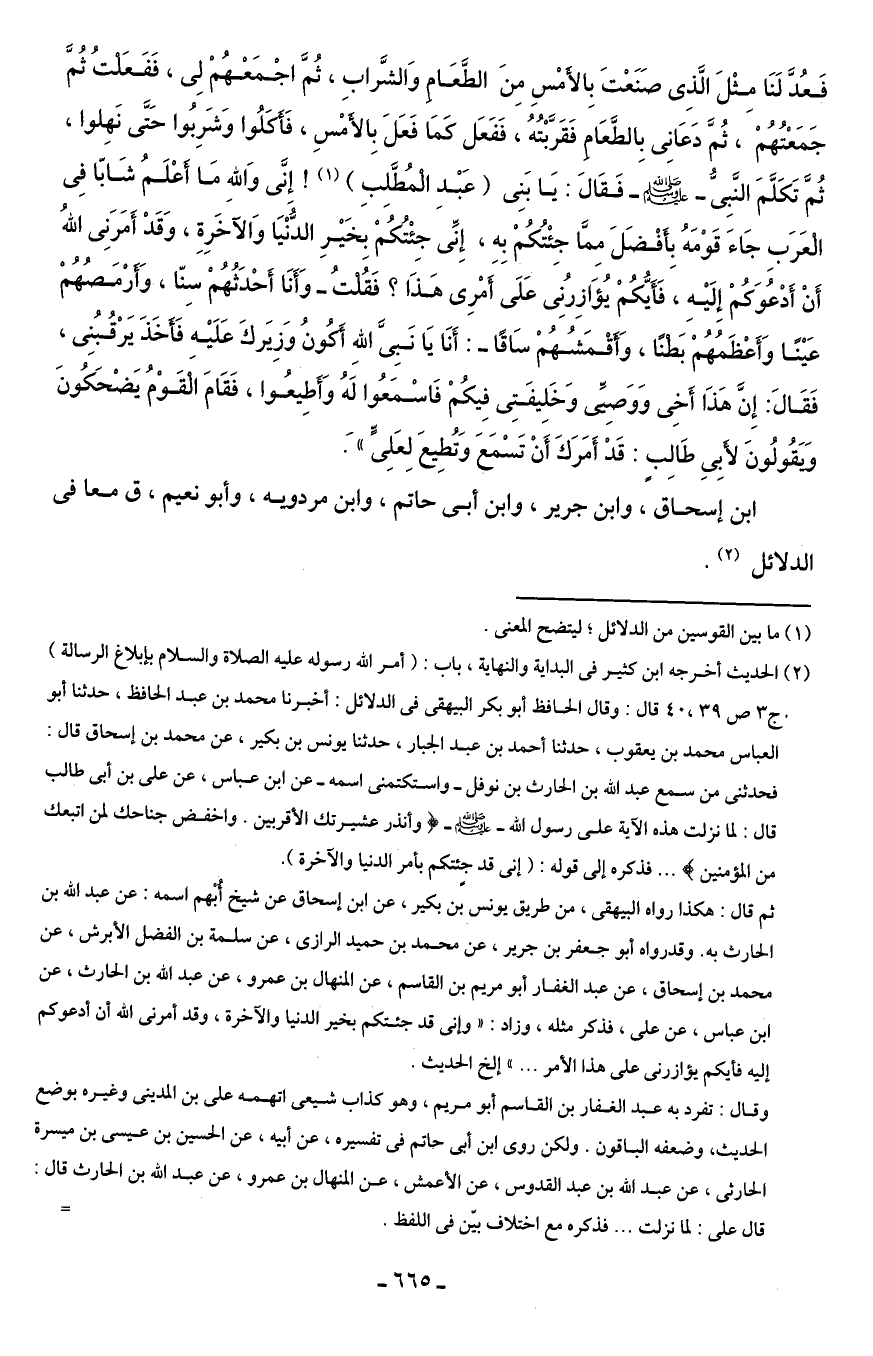 فَعُدَّ لَنَا مِثْلَ الَّذِى صَنَعْتَ بِالأَمْسِ مِنَ الطَّعَامِ وَالشَّرابِ ، ثُمَّ اجْمَعْهُمْ لِى ، فَفَعَلْتُ ثُمَّ
جَمَعْتُهُمْ ، ثُمَّ دَعَانِى بِالطَّعَامِ فَقَرَّبْتُهُ ، فَفَعَل كَمَا فَعَلَ بِالأَمْسِ ، فَأَكَلُوا وَشَرِبُوا حَتَّى نَهِلوا ،
ثُمَّ تَكَلَّمَ النَّبِىُّ ـ ﷺ ـ فَقَالَ : يَا بَنِى ( عَبْدِ الْمُطَّلِبِ ) (١) ! إِنَّى وَاللهِ مَا أَعْلَمُ شَابّا فِى
الْعَرَبِ جَاءَ قَوْمَهُ بِأَفْضَلَ مِمَّا جِئْتُكُمْ بِهِ ، إِنِّى جِئْتُكُمْ بِخَيْرِ الدُّنْيَا وَالآخَرَةِ ، وَقَدْ أَمَرَنِى اللهُ
أَنْ أَدْعُوَكُمْ إِلَيْهِ ، فَأَيُّكُمْ يُؤَازِرُنِى عَلَى أَمْرِى هَذَا ؟ فَقُلْتُ ـ وَأَنَا أَحْدَثُهُمْ سِنّا ، وَأَرْمَصُهُمْ
عَيْنًا وَأَعْظَمُهُمْ بَطْنًا ، وَأَقْمَشُهُمْ سَاقًا ـ : أَنَا يَا نَبِىَّ اللهِ أَكُونُ وَزِيَركَ عَلَيْهِ فَأَخَذَ يَرْقُبُنِى ،
فَقَالَ: إِنَّ هَذَا أَخِى وَوَصِيِّى وَخَلِيفَتِى فِيكُمْ فَاسْمَعُوا لَهُ وَأَطِيعُوا ، فَقَامَ الْقَوْمُ يَضْحَكُونَ
وَيَقُولُونَ لأَبِى طَالِبٍ : قَدْ أَمَرَكَ أَنْ تَسْمَعَ وَتُطِيعَ لِعَلِىٍّ » .
ابن إسحاق ، وابن جرير ، وابن أبى حاتم ، وابن مردويه ، وأبو نعيم ، ق معا فى
الدلائل (٢) .
(١) ما بين القوسين من الدلائل ؛ ليتضح المعنى .
(٢) الحديث أخرجه ابن كثير فى البداية والنهاية ، باب : ( أمر الله رسوله عليه الصلاة والسلام بإبلاغ الرسالة )
ج٣ ص ٣٩ ،٤٠ قال : وقال الحافظ أبو بكر البيهقى فى الدلائل : أخبرنا محمد بن عبد الحافظ ، حدثنا أبو
العباس محمد بن يعقوب ، حدثنا أحمد بن عبد الجبار ، حدثنا يونس بن بكير ، عن محمد بن إسحاق قال :
فحدثنى من سمع عبد الله بن الحارث بن نوفل ـ واستكتمنى اسمه ـ عن ابن عباس ، عن على بن أبى طالب
قال : لما نزلت هذه الآية على رسول الله ـ ﷺ ـ ﴿ وأنذر عشيرتك الأقربين . واخفض جناحك لمن اتبعك
من المؤمنين ﴾ ... فذكره إلى قوله : ( إنى قد جئتكم بأمر الدنيا والآخرة ).
ثم قال : هكذا رواه البيهقى ، من طريق يونس بن بكير ، عن ابن إسحاق عن شيخ أُبْهم اسمه : عن عبد الله بن
الحارث به. وقدرواه أبو جعفر بن جرير ، عن محمد بن حميد الرازى ، عن سلمة بن الفضل الأبرش ، عن
محمد بن إسحاق ، عن عبد الغفار أبو مريم بن القاسم ، عن المنهال بن عمرو ، عن عبد الله بن الحارث ، عن
ابن عباس ، عن على ، فذكر مثله ، وزاد : « وإنى قد جئتكم بخير الدنيا والآخرة ، وقد أمرنى الله أن أدعوكم
إليه فأيكم يؤازرنى على هذا الأمر ... » إلخ الحديث .
وقال : تفرد به عبد الغفار بن القاسم أبو مريم ، وهو كذاب شيعى اتهمه على بن المدينى وغيره بوضع
الحديث، وضعفه الباقون . ولكن روى ابن أبى حاتم فى تفسيره ، عن أبيه ، عن الحسين بن عيسى بن ميسرة
الحارثى ، عن عبد الله بن عبد القدوس ، عن الأعمش ، عن المنهال بن عمرو ، عن عبد الله بن الحارث قال :
قال على : لما نزلت ... فذكره مع اختلاف بيّن فى اللفظ .
=
ـ ٦٦٥ ـ